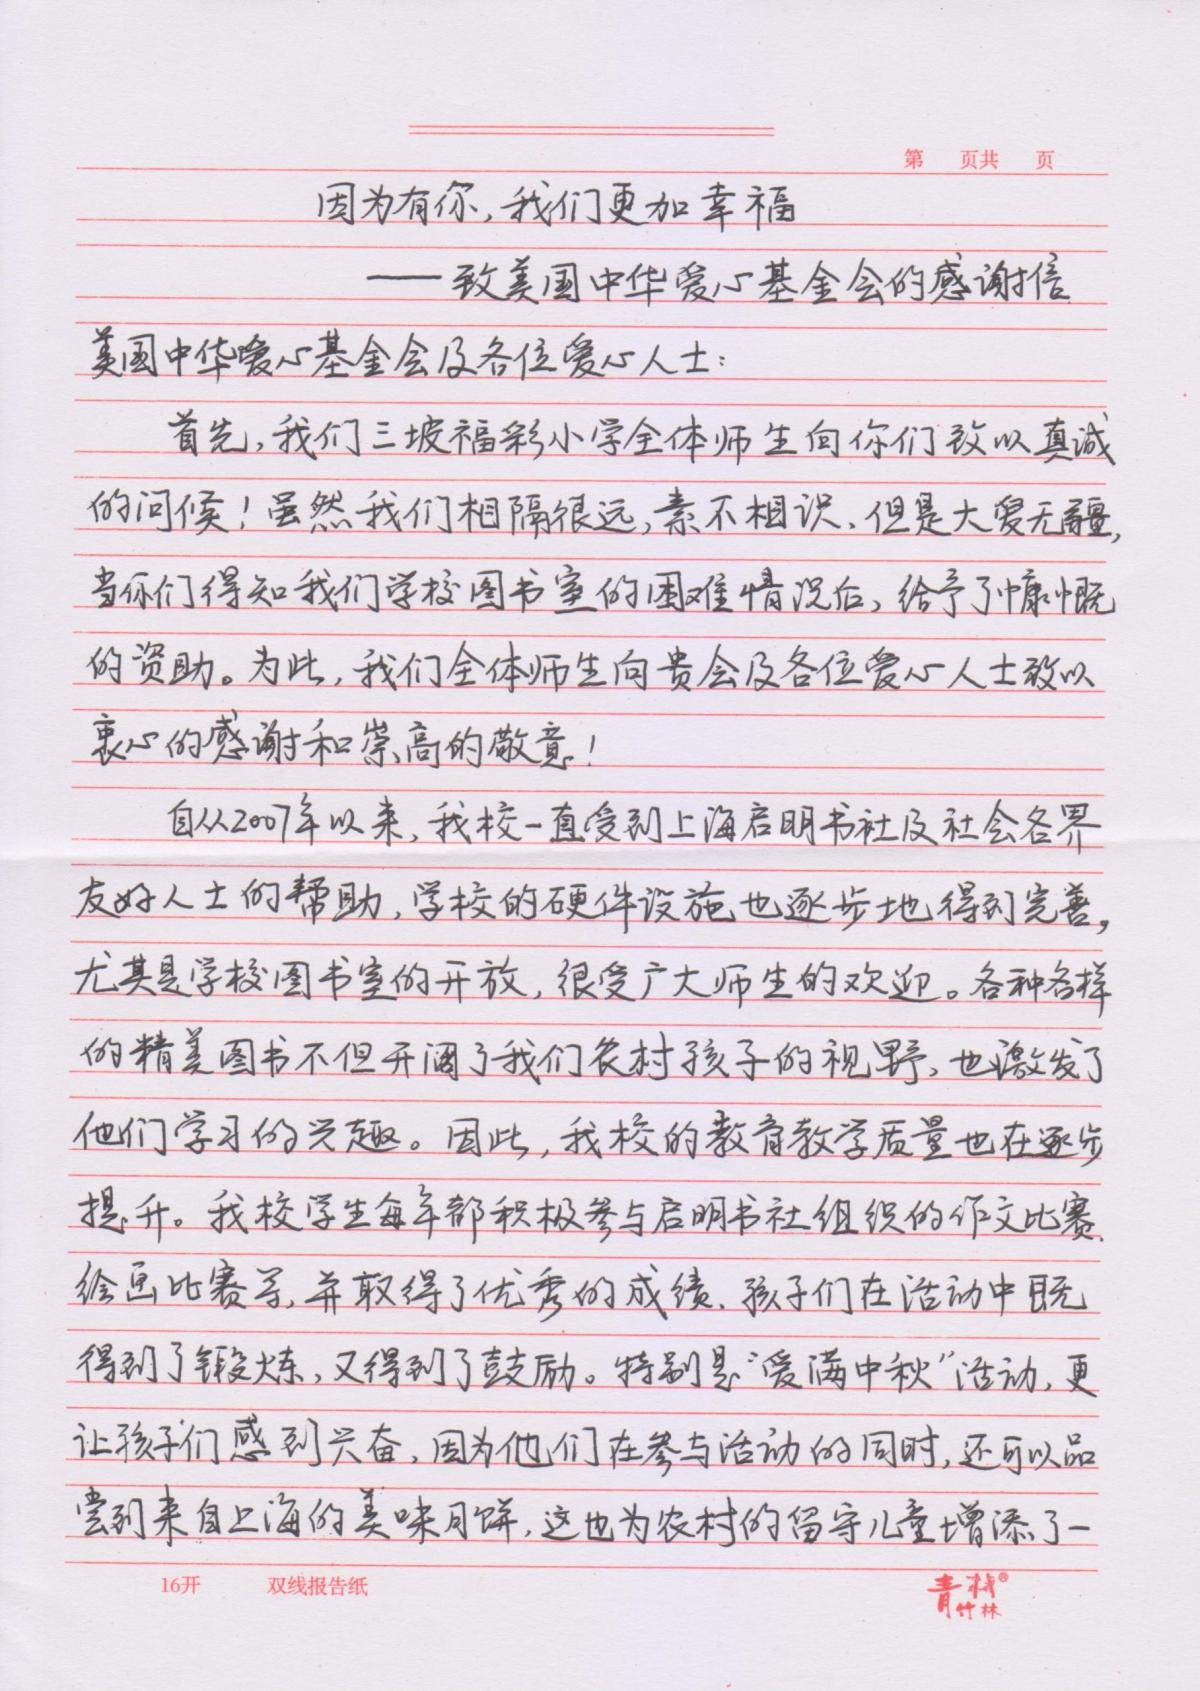 第 页共 页
因为有你,我们更加幸福
——致美国中华爱心基金会的感谢信
美国中华爱心基金会及各位爱心人士:
首先,我们三坡福彩小学全体师生向你们致以真诚
的问候!虽然我们相隔很远,素不相识、但是大爱无疆,
当你们得知我们学校图书室的困难情况后,给予了慷慨
的资助。为此,我们全体师生向贵会及各位爱心人士致以
衷心的感谢和崇高的敬意!
自从2007年以来,我校一直受到上海启明书社及社会各界
友好人士的帮助,学校的硬件设施也逐步地得到完善,
尤其是学校图书室的开放,很受广大师生的欢迎。各种各样
的精美图书不但开阔了我们农村孩子的视野、也激发了
他们学习的兴趣。因此,我校的教育教学质量也在逐步
提升。我校学生每年都积极参与启明书社组织的作文比赛、
绘画比赛等,并取得了优秀的成绩、孩子们在活动中既
得到了锻炼,又得到了鼓励。特别是“爱满中秋”活动,更
让孩子们感到兴奋,因为他们在参与活动的同时,还可以品
尝到来自上海的美味月饼,这也为农村的留守儿童增添了一
16开 双线报告纸
青竹林